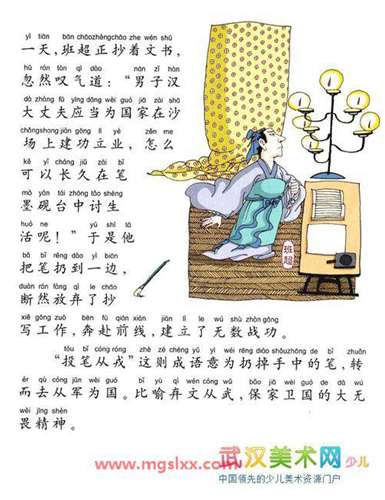 yì tiān bān chāozhèngchāo zhe wén shū
一天,班超正抄着文书,
hū rán tàn qì dào nán zǐ hàn
忽然叹气道:“男子汉
dà zhàng fū yīng dāng wèi guó jiā zài shā
大丈夫应当为国家在沙
chǎngshang jiàn gōng lì yè zěn me
场上建功立业,怎么
kě yǐ cháng jiǔ zài bǐ
可以长久在笔
mò yàn tái zhōng tǎo shēng
墨砚台中讨生
huó ne yú shì tā
活呢!”于是他
bǎ bǐ rēng dào yì biān
把笔扔到一边,
duàn rán fàng qì le chāo
断然放弃了抄
xiě gōng zuò bēn fù qián xiàn jiàn lì le wú shù zhàn gōng
写工作,奔赴前线,建立了无数战功。
tóu bǐ cóng róng zhè zé chéng yǔ yì wéi rēng diào shǒuzhōng de bǐ zhuǎn
“投笔从戎”这则成语意为扔掉手中的笔,转
ér qù cóng jūn wèi guó bǐ yù qì wén cóng wǔ bǎo jiā wèi guó de dà wú
而去从军为国。比喻弃文从武,保家卫国的大无
wèi jīng shén
畏精神。
班超
武汉美术网少儿
www.mgslxx.com
中国领先的少儿美术资源门户